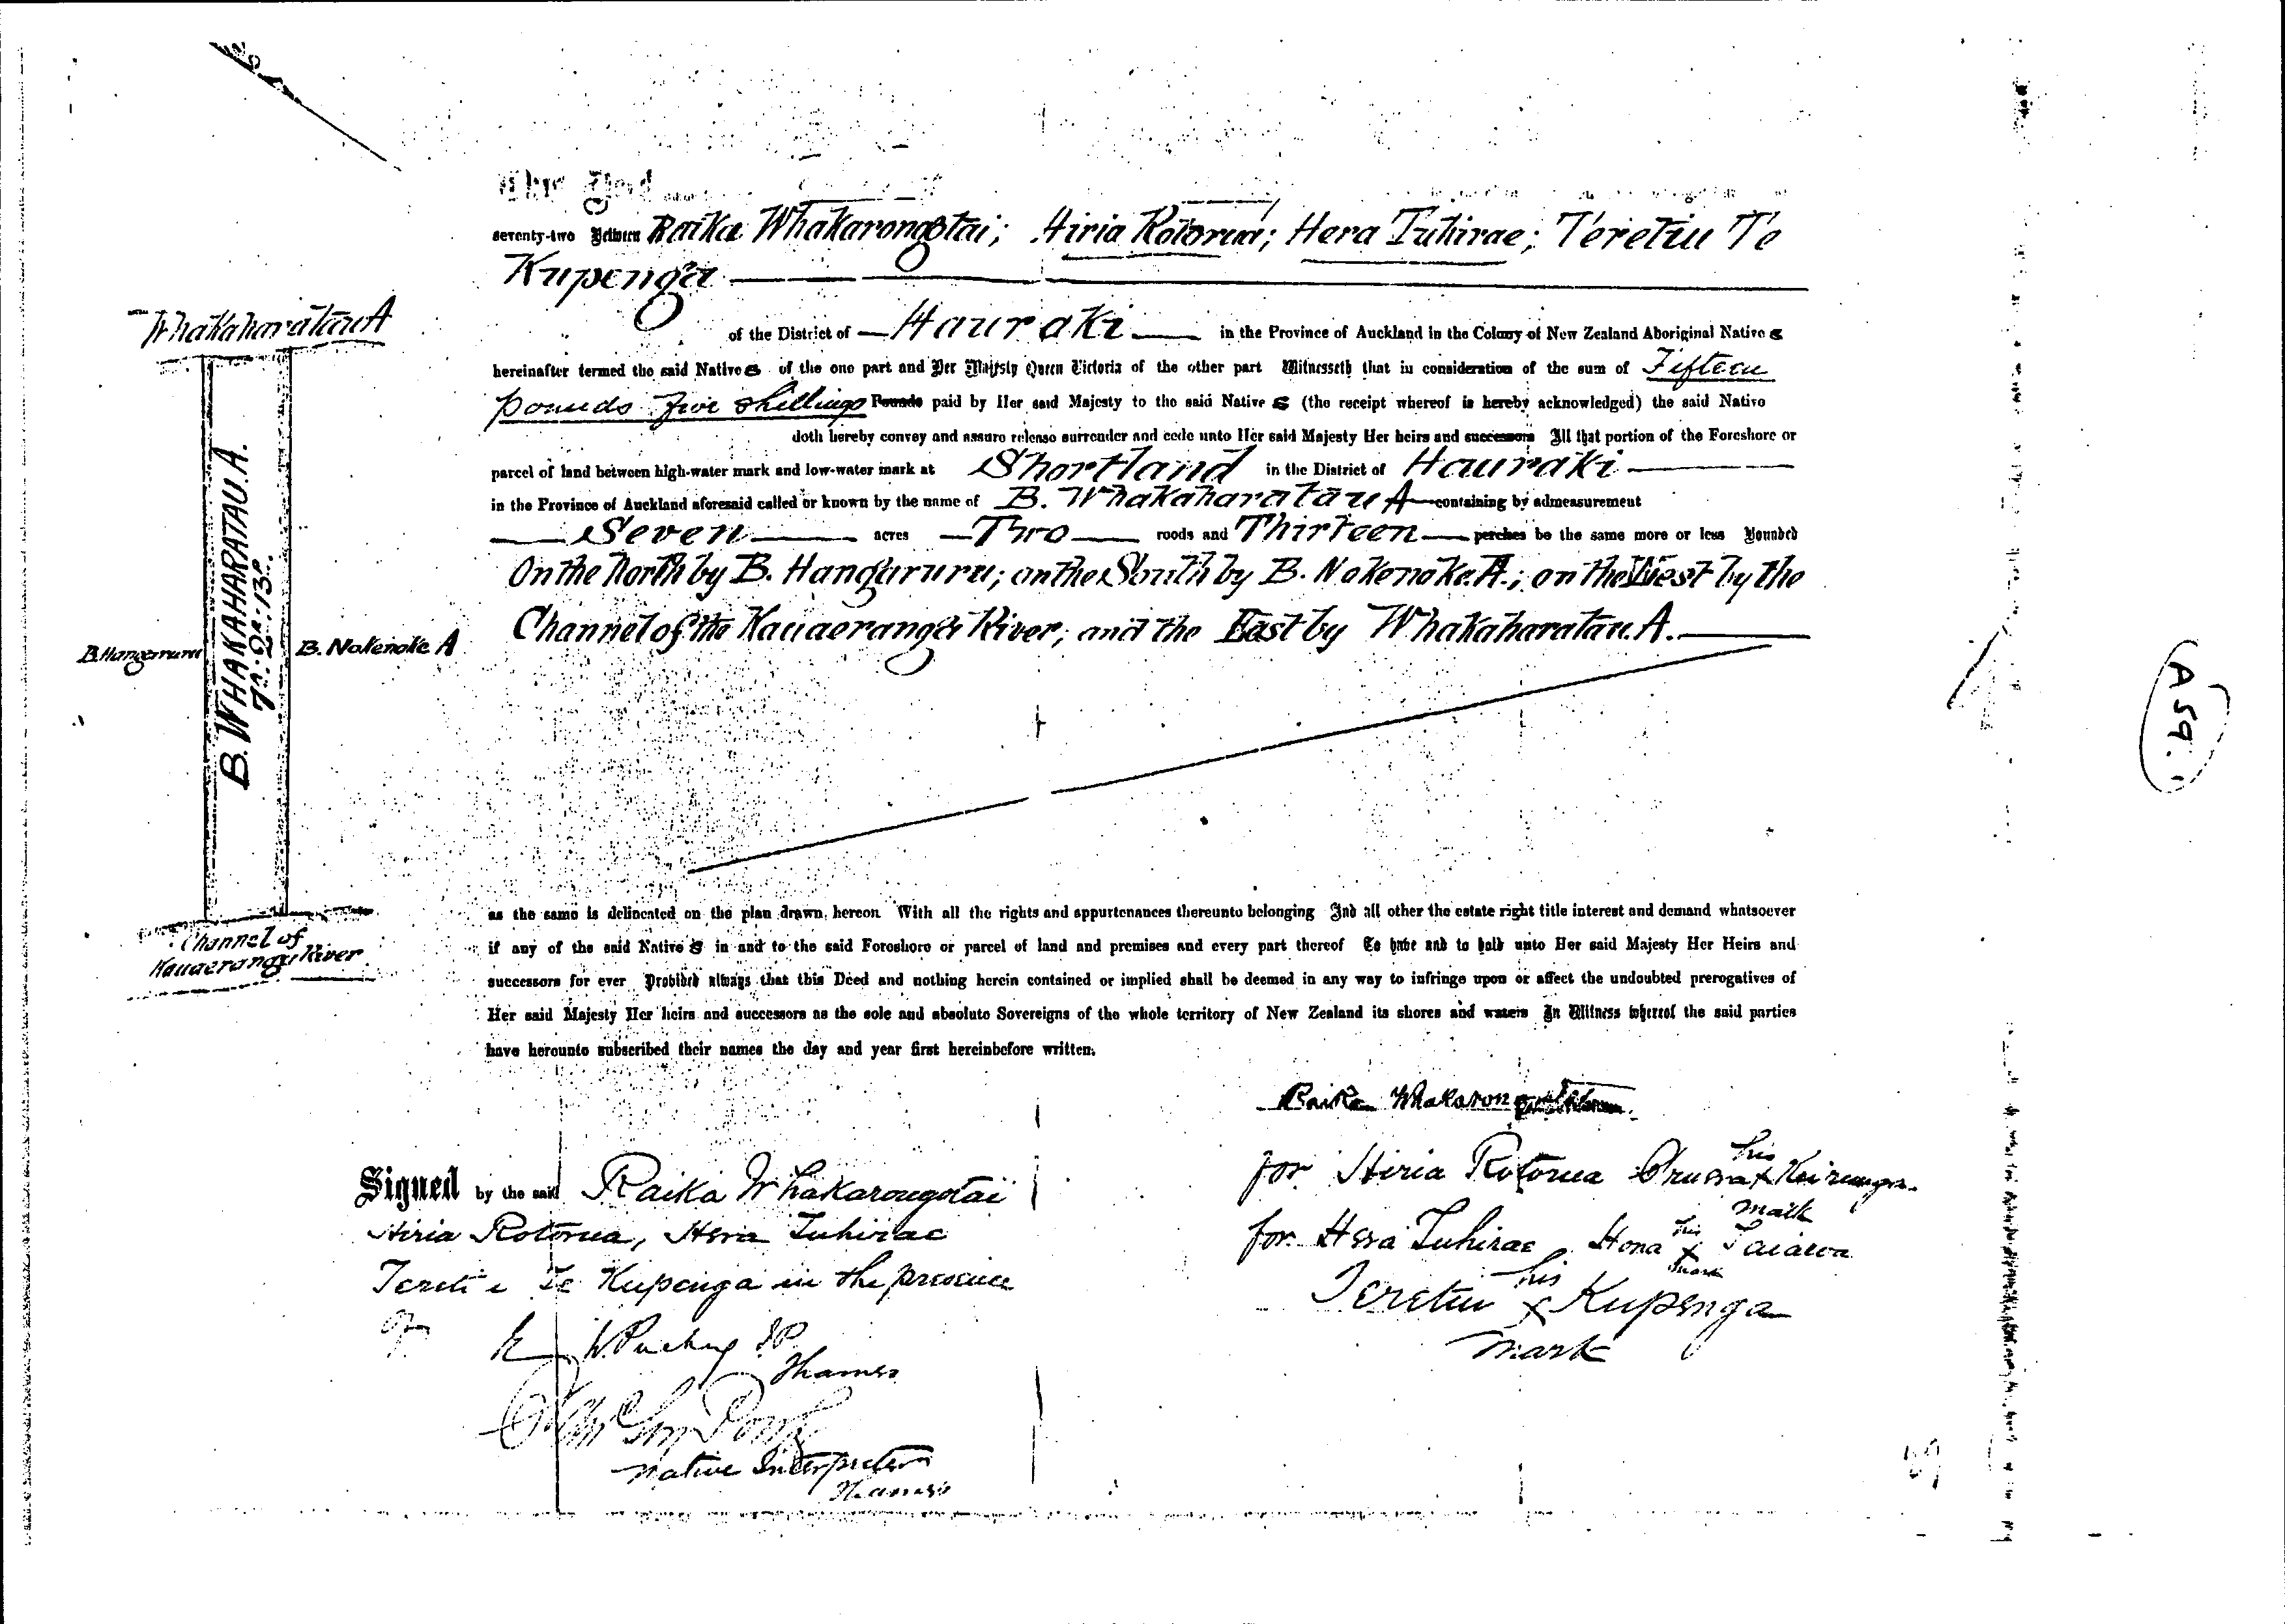 This Deed
seventy-two Between Raika Whakarongotai; Hiria Rotorua; Hera Tuhirae; Teretiu Te
Kupenga
of the District of Hauraki in the Province of Auckland in the Colony of New Zealand Aboriginal Natives
hereinafter termed the said Natives of the one part and Her Majesty Queen Victoria of the other part Witnesseth that in consideration of the sum of Fifteen
pounds five shillings Pounds paid by Her said Majesty to the said Natives (the receipt whereof is hereby acknowledged) the said Native
doth hereby convey and assure release surrender and cede unto Her said Majesty Her heirs and successors All that portion of the Foreshore or
parcel of land between high-water mark and low-water mark at Shortland in the District of Hauraki
in the Province of Auckland aforesaid called or known by the name of B. Whakaharatau A containing by admeasurement
Seven acres Two roods and Thirteen perches be the same more or less Bounded
On the North by B. Hangaruru; on the South by B. Nokenoke A.; on the West by the
Channel of the Kauaeranga River; and the East by Whakaharatau A.
Whakaharatau A
B. WHAKAHARATAU. A.
7A: 2R: 13P.
B. Hangaruru
B. Nokenoke A
Channel of
Kauaeranga River
A 59.
as the same is delineated on the plan drawn hereon With all the rights and appurtenances thereunto belonging And all other the estate right title interest and demand whatsoever
if any of the said Natives in and to the said Foreshore or parcel of land and premises and every part thereof To have and to hold unto Her said Majesty Her Heirs and
successors for ever Provided always that this Deed and nothing herein contained or implied shall be deemed in any way to infringe upon or affect the undoubted prerogatives of
Her said Majesty Her heirs and successors as the sole and absolute Sovereigns of the whole territory of New Zealand its shores and waters In Witness whereof the said parties
have hereunto subscribed their names the day and year first hereinbefore written.
Raika
for Hiria Rotorua his x mark
for Hera Tuhirae Hona his x mark Taiaroa
Teretiu his x mark Kupenga
Signed by the said Raika Whakarongotai
Hiria Rotorua, Hera Tuhirae
Te Kupenga in the presence
of
W. Puckey JP
Thames
Native Interpreter
Thames